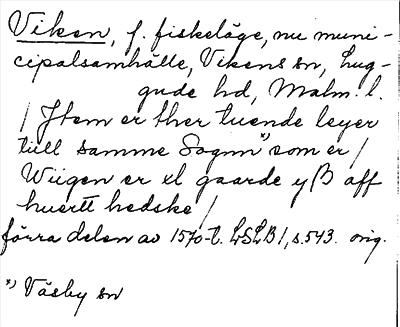 Viken, f. fiskeläge, nu muni-
cipalsamhälle, Vikens sn, Lug-
gude hd, Malm. l.
/ Jtem er ther tuende leyer
till samme Sognn *) som er /
Wiigen er xl gaarde yß aff
huertt hedske /
förra delen av 1570-t. LSLB 1, s. 543. orig.
*) Väsby sn